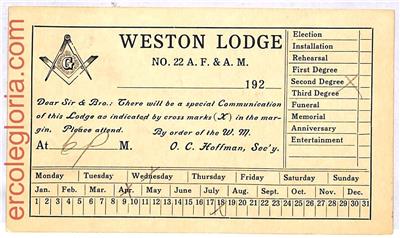 ercolegloria.com
G
WESTON LODGE
NO. 22 A. F. & A. M.
192
Dear Sir & Bro.: There will be a special Communication
of this Lodge as indicated by cross marks (X) in the mar-
gin. Please attend. By order of the W. M.
At M. O. C. Hoffman, Sec'y.
Election
Installation
Rehearsal
First Degree
Second Degree X
Third Degree
Funeral
Memorial
Anniversary
Entertainment
Monday Tuesday Wednesday Thursday Friday Saturday Sunday
Jan. Feb. Mar. Apr. May June July Aug. Sept. Oct. Nov. Dec.
1 2 3 4 5 6 7 8 9 10 11 12 13 14 15 16 17 18 19 20 21 22 23 24 25 26 27 28 29 30 31